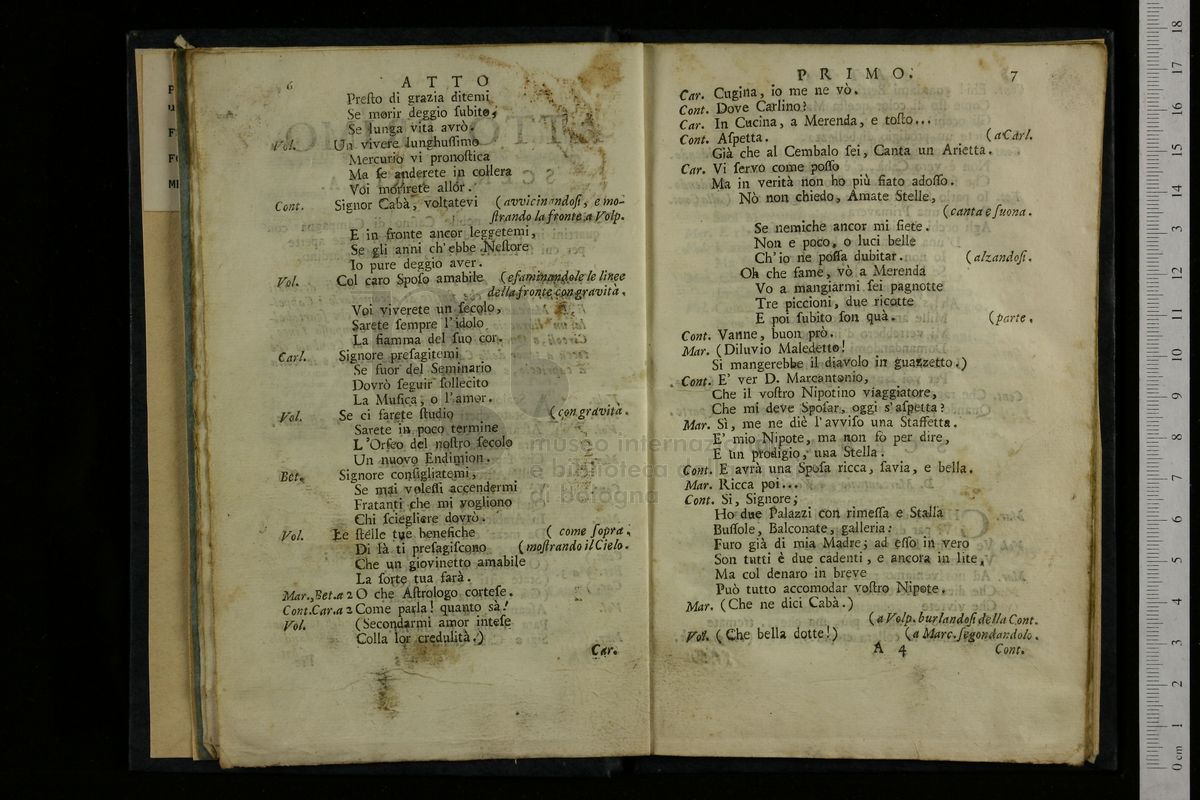 6
ATTO
Preſto di grazia ditemi
Se morir deggio ſubito,
Se lunga vita avrò.
Vol. Un vivere lunghuſſimo
Mercurio vi pronoſtica
Ma ſe anderete in collera
Voi morirete allor.
Cont. Signor Cabà, voltatevi (avvicinandoſi, e mo-
ſtrando la fronte a Volp.
E in fronte ancor leggetemi,
Se gli anni ch'ebbe Neſtore
Io pure deggio aver.
Vol. Col caro Spoſo amabile (eſaminandole le linee
della fronte con gravità.
Voi viverete un ſecolo,
Sarete ſempre l'idolo
La fiamma del ſuo cor.
Carl. Signore preſagitemi
Se fuor del Seminario
Dovrò ſeguir ſollecito
La Muſica, o l'amor.
Vol. Se ci farete ſtudio (con gravità.
Sarete in poco termine
L'Orfeo del noſtro ſecolo
Un nuovo Endimion.
Bet. Signore conſigliatemi,
Se mai voleſſi accendermi
Fratanti che mi vogliono
Chi ſciegliere dovrò.
Vol. Le ſtelle tue benefiche (come ſopra,
Di là ti preſagiſcono (moſtrando il Cielo.
Che un giovinetto amabile
La ſorte tua farà.
Mar., Bet. a 2 O che Aſtrologo corteſe.
Cont. Car. a 2 Come parla! quanto sà!
Vol. (Secondarmi amor inteſe
Colla lor credulità.)
Car.
PRIMO.
7
Car. Cugina, io me ne vò.
Cont. Dove Carlino?
Car. In Cucina, a Merenda, e toſto...
Cont. Aſpetta. (a Carl.
Già che al Cembalo ſei, Canta un Arietta.
Car. Vi ſervo come poſſo
Ma in verità non ho più fiato adoſſo.
Nò non chiedo, Amate Stelle,
(canta e ſuona.
Se nemiche ancor mi ſiete.
Non e poco, o luci belle
Ch'io ne poſſa dubitar. (alzandoſi.
Oh che fame, vò a Merenda
Vo a mangiarmi ſei pagnotte
Tre piccioni, due ricotte
E poi ſubito ſon quà. (parte.
Cont. Vanne, buon prò.
Mar. (Diluvio Maledetto!
Si mangerebbe il diavolo in guazzetto.)
Cont. E' ver D. Marcantonio,
Che il voſtro Nipotino viaggiatore,
Che mi deve Spoſar, oggi s'aſpetta?
Mar. Sì, me ne diè l'avviſo una Staffetta.
E' mio Nipote, ma non fò per dire,
E un prodigio, una Stella.
Cont. E avrà una Spoſa ricca, ſavia, e bella.
Mar. Ricca poi...
Cont. Si, Signore;
Ho due Palazzi con rimeſſa e Stalla
Buſſole, Balconate, galleria:
Furo già di mia Madre; ad eſſo in vero
Son tutti è due cadenti, e ancora in lite,
Ma col denaro in breve
Può tutto accomodar voſtro Nipote.
Mar. (Che ne dici Cabà.)
(a Volp. burlandoſi della Cont.
Vol. (Che bella dotte!) (a Marc. ſegondandolo.
A 4
Cont.
museo internazionale
e biblioteca
di bologna